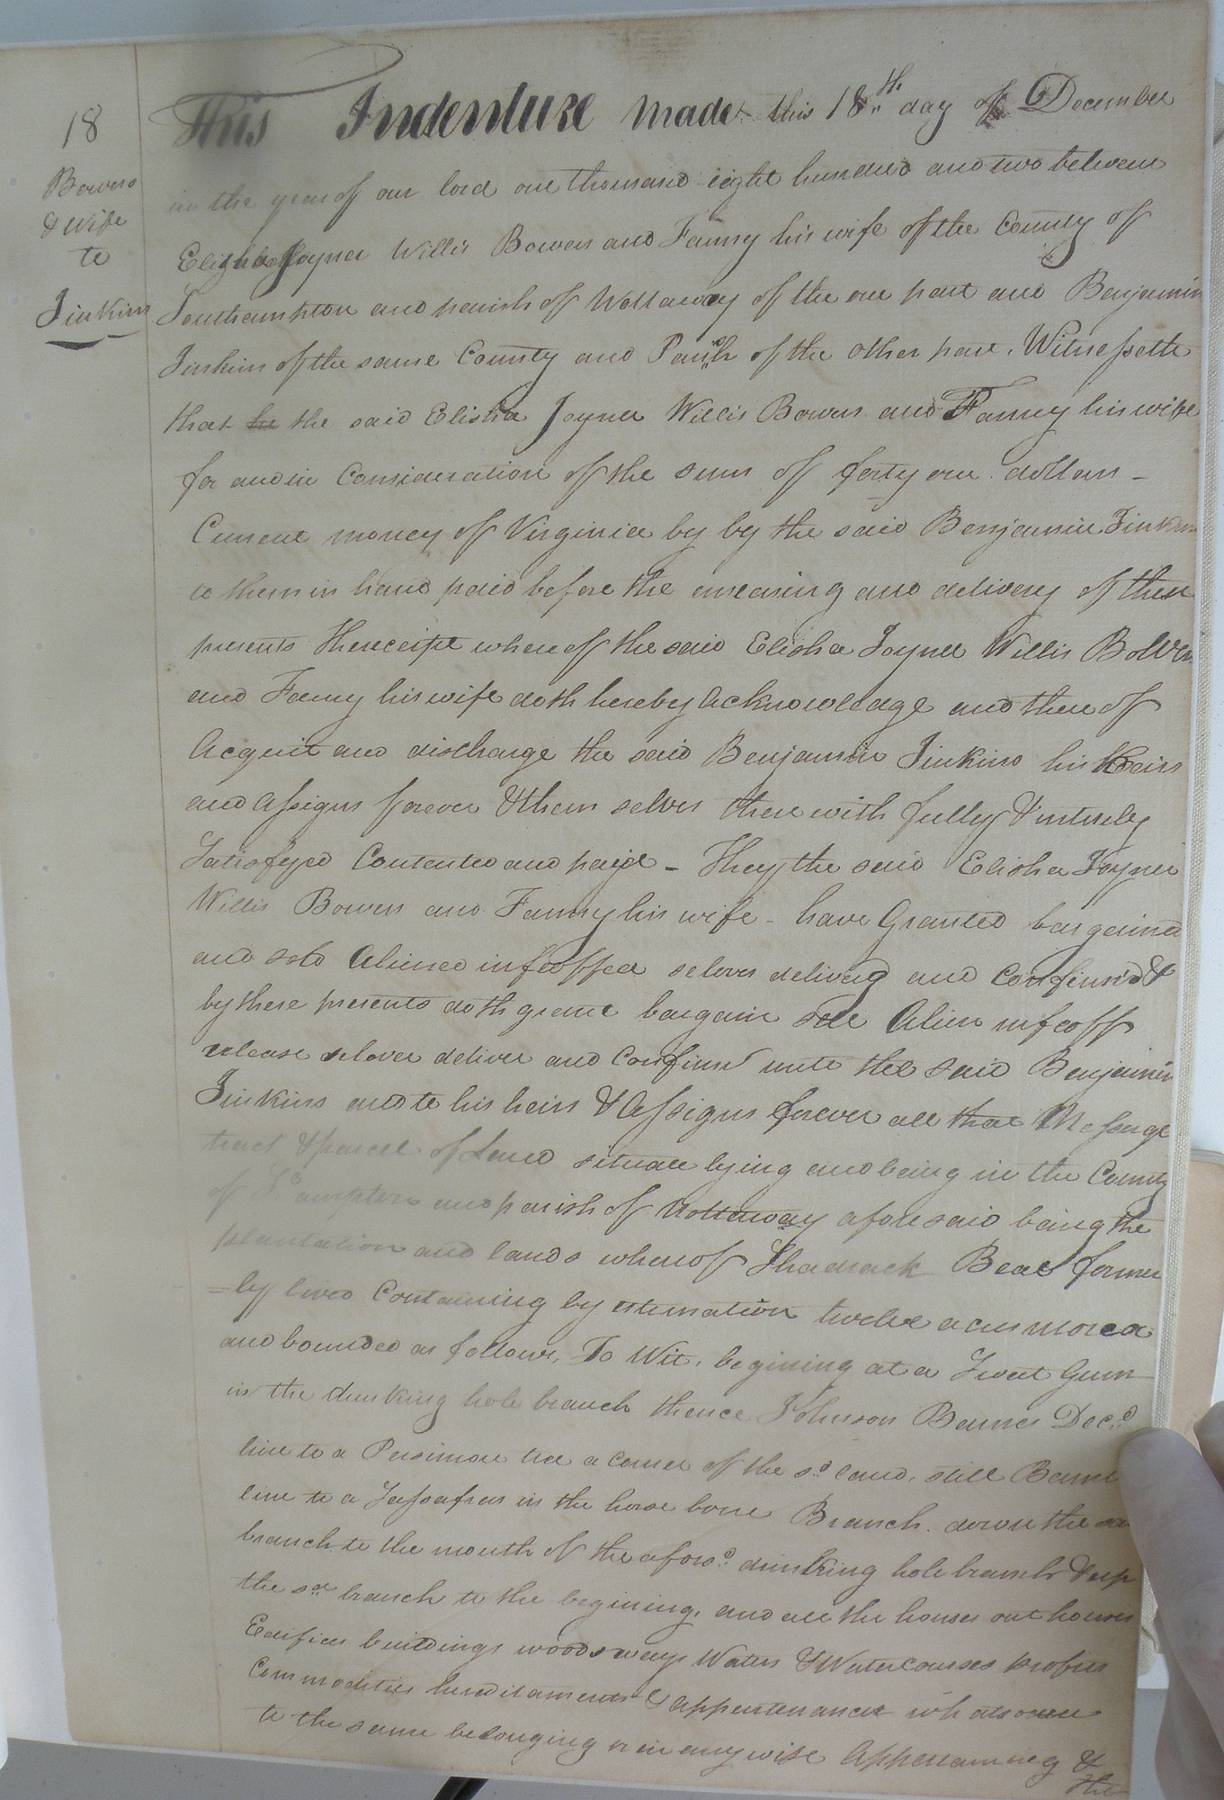 18
Bowers
& wife
to
Jinkins
This Indenture made this 18th day of December
in the year of our lord one thousand eight hundred and two between
Elisha Joyner Willis Bowers and Fanny his wife of the County of
Southampton and parish of Nottaway of the one part and Benjamin
Jinkins of the same County and Parish of the other part. Witnesseth
that he the said Elisha Joyner Willis Bowers and Fanny his wife
for and in Consideration of the sum of forty one dollars -
Current money of Virginia by by the said Benjamin Jinkins
to them in hand paid before the ensealing and delivery of these
presents the receipt where of the said Elisha Joyner Willis Bowers
and Fanny his wife doth hereby Acknowledge and there of
Acquit and discharge the said Benjamin Jinkins his Heirs
and Assigns forever & them selves there with fully & intirely
Satisfyed Contented and paid - They the said Elisha Joyner
Willis Bowers and Fanny his wife - have Granted bargained
and sold Aliened infeoffed delivered and Confirmd &
by these presents doth grant bargain sell Alien infeoff
release deliver and Confirm unto the said Benjamin
Jinkins and to his heirs & Assigns forever all that Messuage
tract & parcel of Land situate lying and being in the County
of S.ampton and parish of Nottaway aforesaid being the
plantation and lands whereof Shadrack Beal former
=ly lived Containing by estimation twelve acres
and bounded as follows, To Wit, begining at a Sweet Gum
in the drinking hole branch thence Johnson Barnes Decd
line to a Persimon tree a Corner of the sd land, still Barnes
line to a Sassafras in the horse bone Branch. down the
branch to the mouth of the aforsd drinking hole branch & up
the sd branch to the begining, and all the houses out houses
Edifices buildings woods ways Waters & Watercourses profits
Commodities hereditaments & appurtenances whatsoever
to the same belonging or in any wise Appertaining &
the